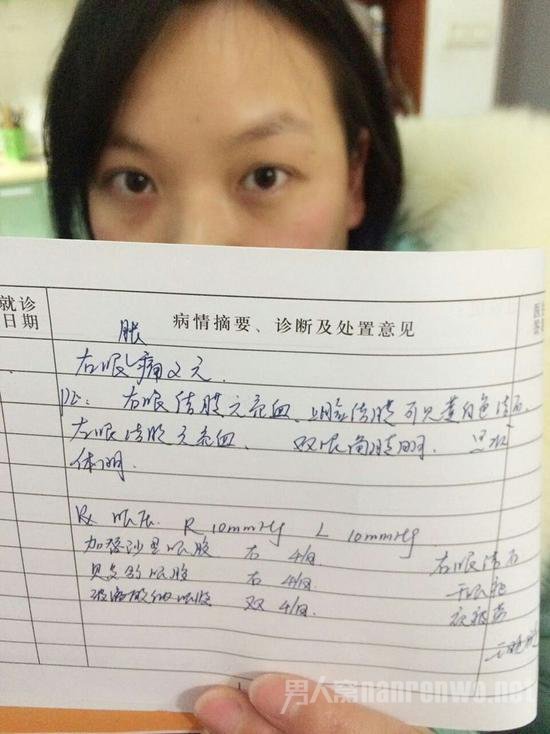 就诊日期
病情摘要、诊断及处置意见
医
胀
右眼痛2天.
PE: 右眼结膜无充血、上睑结膜可见黄白色结石,
左眼结膜无充血. 双眼角膜明. 晶状
体明.
Rx 眼压. R 10mmHg L 10mmHg
加替沙星眼 右 4/日 右眼结石
贝复 眼 右 4/日. 干眼
玻璃酸钠眼 双 4/日.
男人窝nanrenwo.net